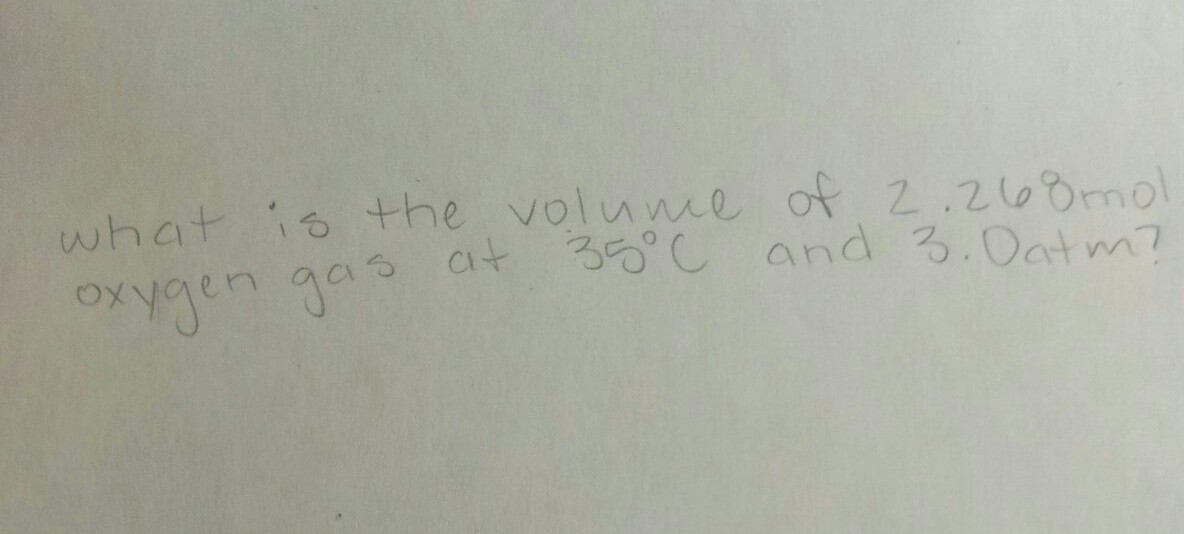 what is the volume of 2.268mol
oxygen gas at 35°C and 3.0atm?